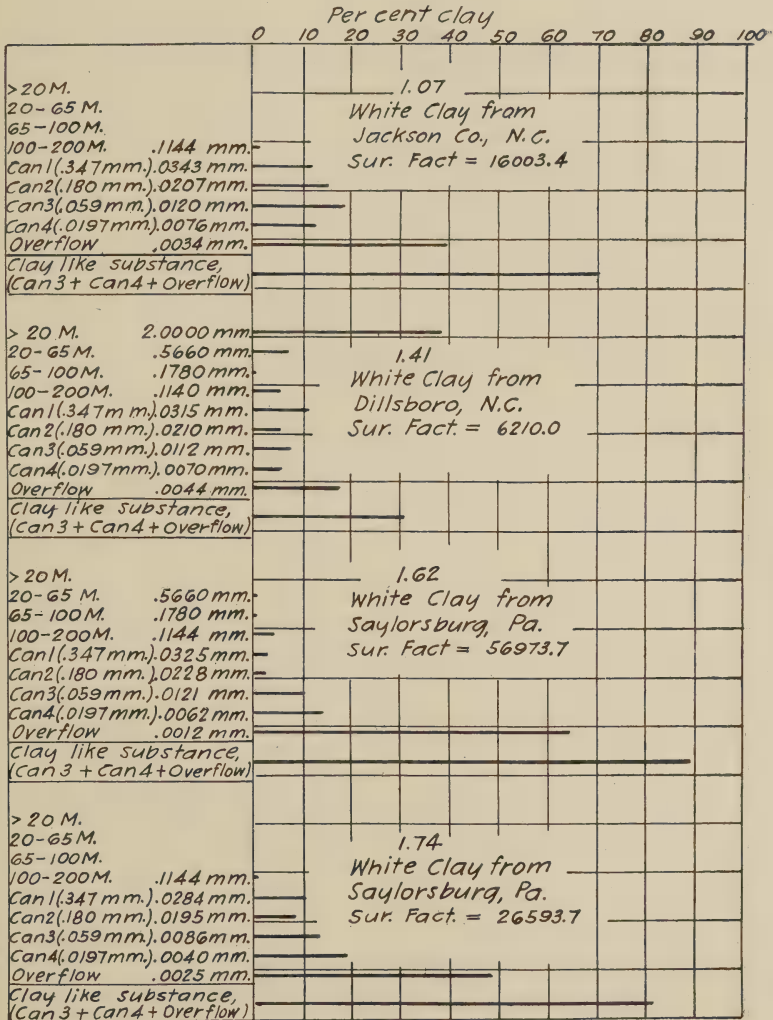 Per cent clay
0 10 20 30 40 50 60 70 80 90 100
>20M.
20-65 M.
65-100M.
100-200M. .1144 mm.
Can1(.347mm.).0343mm.
Can2(.180 mm.).0207mm.
Can3(.059mm.).0120 mm.
Can4(.0197mm.).0076mm.
Overflow .0034 mm.
Clay like substance,
(Can3 + Can4 + Overflow)
1.07
White Clay from
Jackson Co., N.C.
Sur. Fact = 16003.4
> 20 M. 2.0000 mm.
20-65M. .5660mm.
65-100M. .1780mm.
100-200M. .1140 mm.
Can1(.347mm.).0315mm.
Can2(.180 mm.).0210mm.
Can3(.059mm.).0112 mm.
Can4(.0197mm.).0070mm.
Overflow .0044 mm.
Clay like substance,
(Can 3 + Can 4 + Overflow)
1.41
White Clay from
Dillsboro, N.C.
Sur. Fact. = 6210.0
> 20M.
20-65 M. .5660mm.
65-100M. .1780 mm.
100-200M. .1144 mm.
Can1(.347mm.).0325mm.
Can2(.180 mm.).0228mm.
Can3(.059mm.).0121 mm.
Can4(.0197mm.).0062mm.
Overflow .0012 mm.
Clay like substance,
(Can 3 + Can4 + Overflow)
1.62
White Clay from
Saylorsburg, Pa.
Sur. Fact = 56973.7
> 20 M.
20-65M.
65-100M.
100-200M. .1144 mm.
Can1(.347mm.).0284mm.
Can2(.180 mm.).0195mm.
Can3(.059mm.).0086mm.
Can4(.0197mm.).0040mm.
Overflow .0025 mm.
Clay like substance,
(Can 3 + Can4 + Overflow)
1.74
White Clay from
Saylorsburg, Pa.
Sur. Fact. = 26593.7